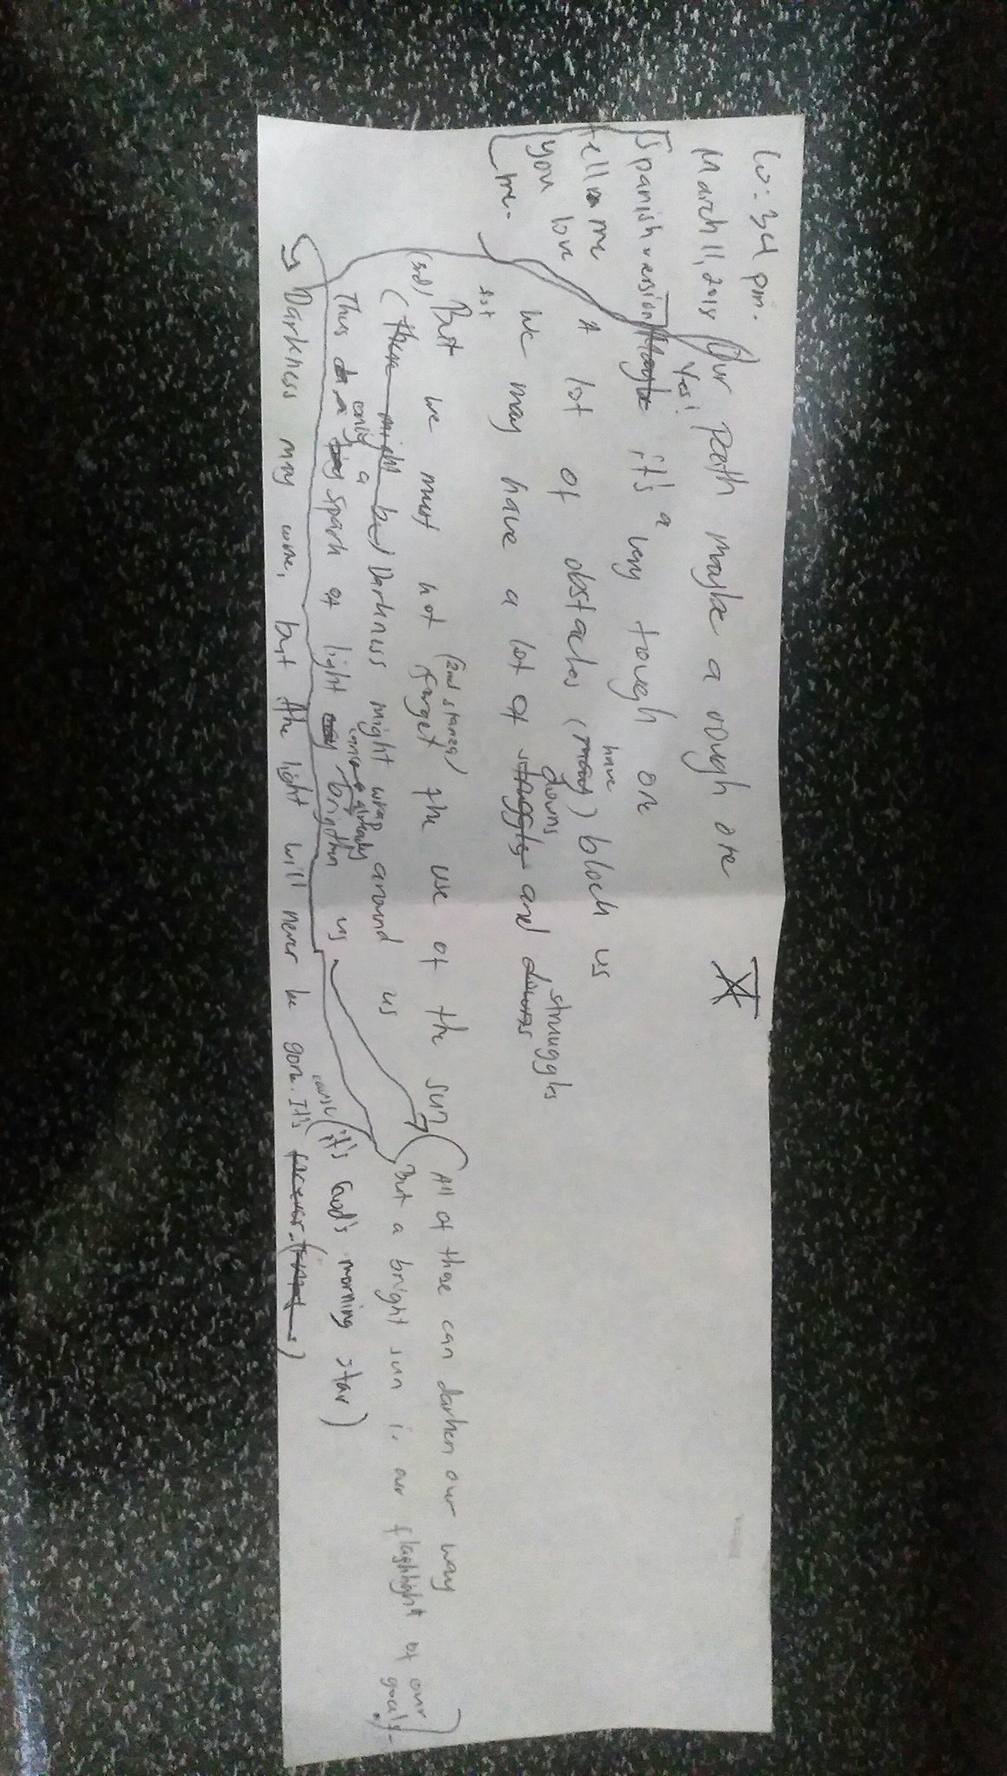 10:34 pm.
March 11, 2018
[Spanish version
tell me
you love
me.
Our path maybe a rough one
Yes! Maybe it's a very tough one
A lot of obstacles (may) have block us
We may have a lot of struggles downs and downs struggles
1st
But we must not forget the use of the sun
(2nd stanza)
(3rd)
(There might be) Darkness might wrap around us
Thus only a spark of light brighten us
(All of these can darken our way
But a bright sun is our flashlight of our goals.)
cause (it's God's morning star)
Darkness may come, but the light will never be gone. It's forever